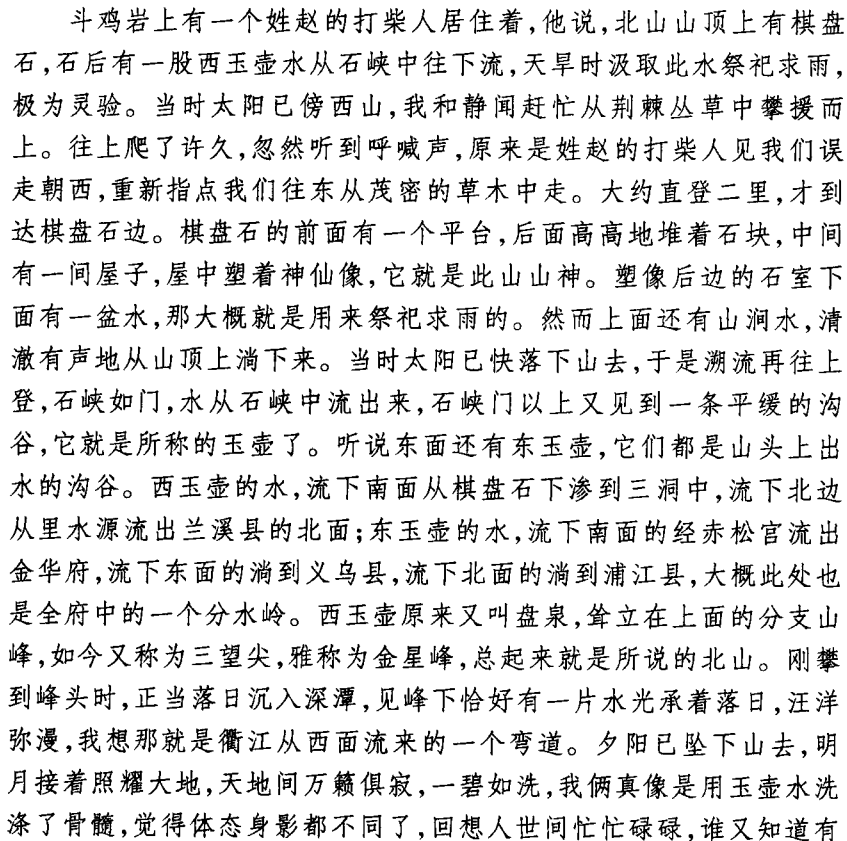 斗鸡岩上有一个姓赵的打柴人居住着,他说,北山山顶上有棋盘
石,石后有一股西玉壶水从石峡中往下流,天旱时汲取此水祭祀求雨,
极为灵验。当时太阳已傍西山,我和静闻赶忙从荆棘丛草中攀援而
上。往上爬了许久,忽然听到呼喊声,原来是姓赵的打柴人见我们误
走朝西,重新指点我们往东从茂密的草木中走。大约直登二里,才到
达棋盘石边。棋盘石的前面有一个平台,后面高高地堆着石块,中间
有一间屋子,屋中塑着神仙像,它就是此山山神。塑像后边的石室下
面有一盆水,那大概就是用来祭祀求雨的。然而上面还有山涧水,清
澈有声地从山顶上淌下来。当时太阳已快落下山去,于是溯流再往上
登,石峡如门,水从石峡中流出来,石峡门以上又见到一条平缓的沟
谷,它就是所称的玉壶了。听说东面还有东玉壶,它们都是山头上出
水的沟谷。西玉壶的水,流下南面从棋盘石下渗到三洞中,流下北边
从里水源流出兰溪县的北面;东玉壶的水,流下南面的经赤松宫流出
金华府,流下东面的淌到义乌县,流下北面的淌到浦江县,大概此处也
是全府中的一个分水岭。西玉壶原来又叫盘泉,耸立在上面的分支山
峰,如今又称为三望尖,雅称为金星峰,总起来就是所说的北山。刚攀
到峰头时,正当落日沉入深潭,见峰下恰好有一片水光承着落日,汪洋
弥漫,我想那就是衢江从西面流来的一个弯道。夕阳已坠下山去,明
月接着照耀大地,天地间万籁俱寂,一碧如洗,我俩真像是用玉壶水洗
涤了骨髓,觉得体态身影都不同了,回想人世间忙忙碌碌,谁又知道有